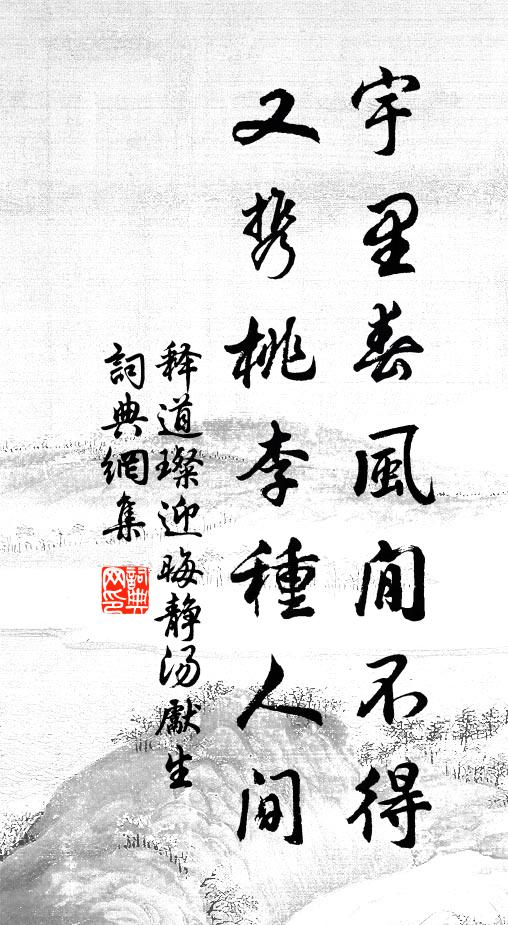 宇里春風閒不得
又携桃李種人間
释道璨迎晦静湯獻生
詞典網集
詞典網印